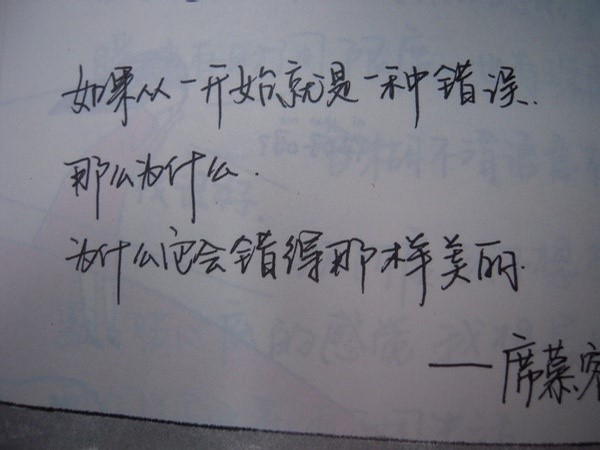 如果从一开始就是一种错误.
那么为什么.
为什么它会错得那样美丽.
——席慕容